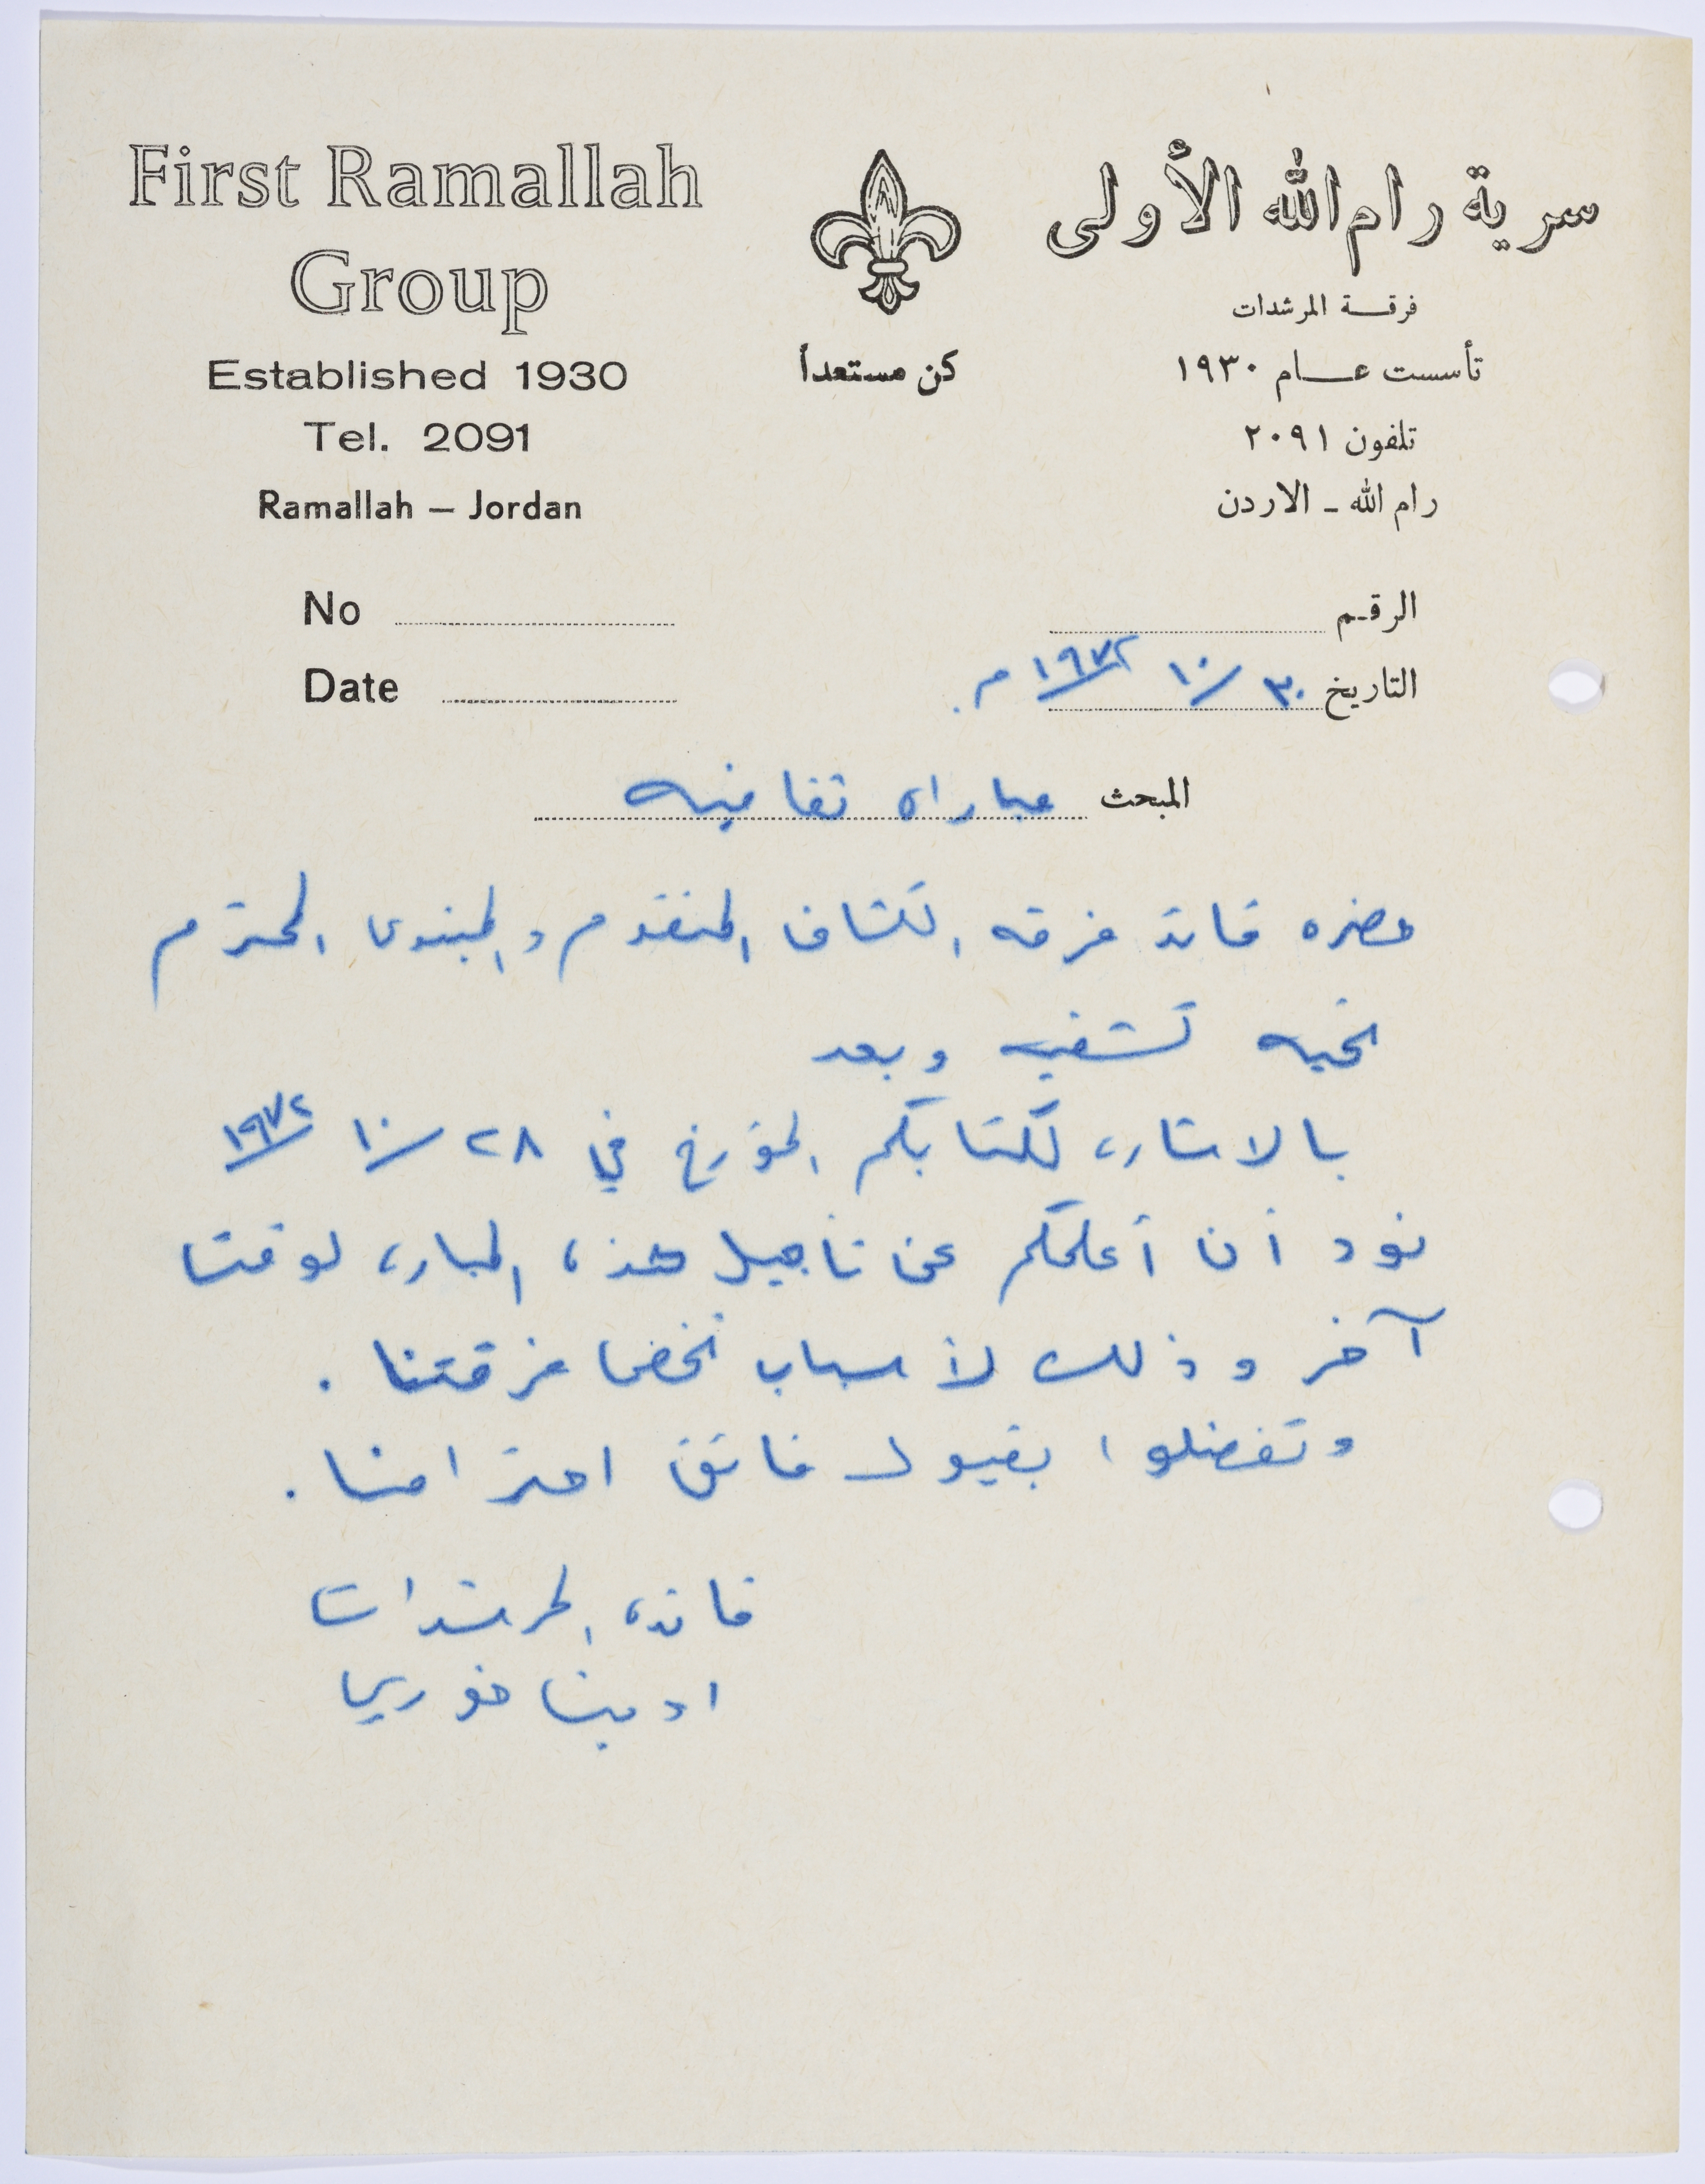 First Ramallah
Group
Established 1930
Tel. 2091
Ramallah – Jordan
كن مستعداً
سرية رام الله الأولى
فرقة المرشدات
تأسست عام ١٩٣٠
تلفون ٢٠٩١
رام الله - الاردن
No
Date
الرقم
التاريخ ٣٠ / ١٠ / ١٩٧٢ م.
المبحث مباراه ثقافيه
حضره قائد فرقه الكشاف المتقدم والمبتدئ المحترم
تحيه كشفيه وبعد
بالاشاره لكتابكم المؤرخ في ٢٨ / ١٠ / ١٩٧٢
نود أن أعلمكم عن تأجيل هذه المباره لوقت
آخر وذلك لأسباب تخص فرقتنا .
وتفضلوا بقبول فائق احترامنا .
قائده المرشدات
ادبينا خوري